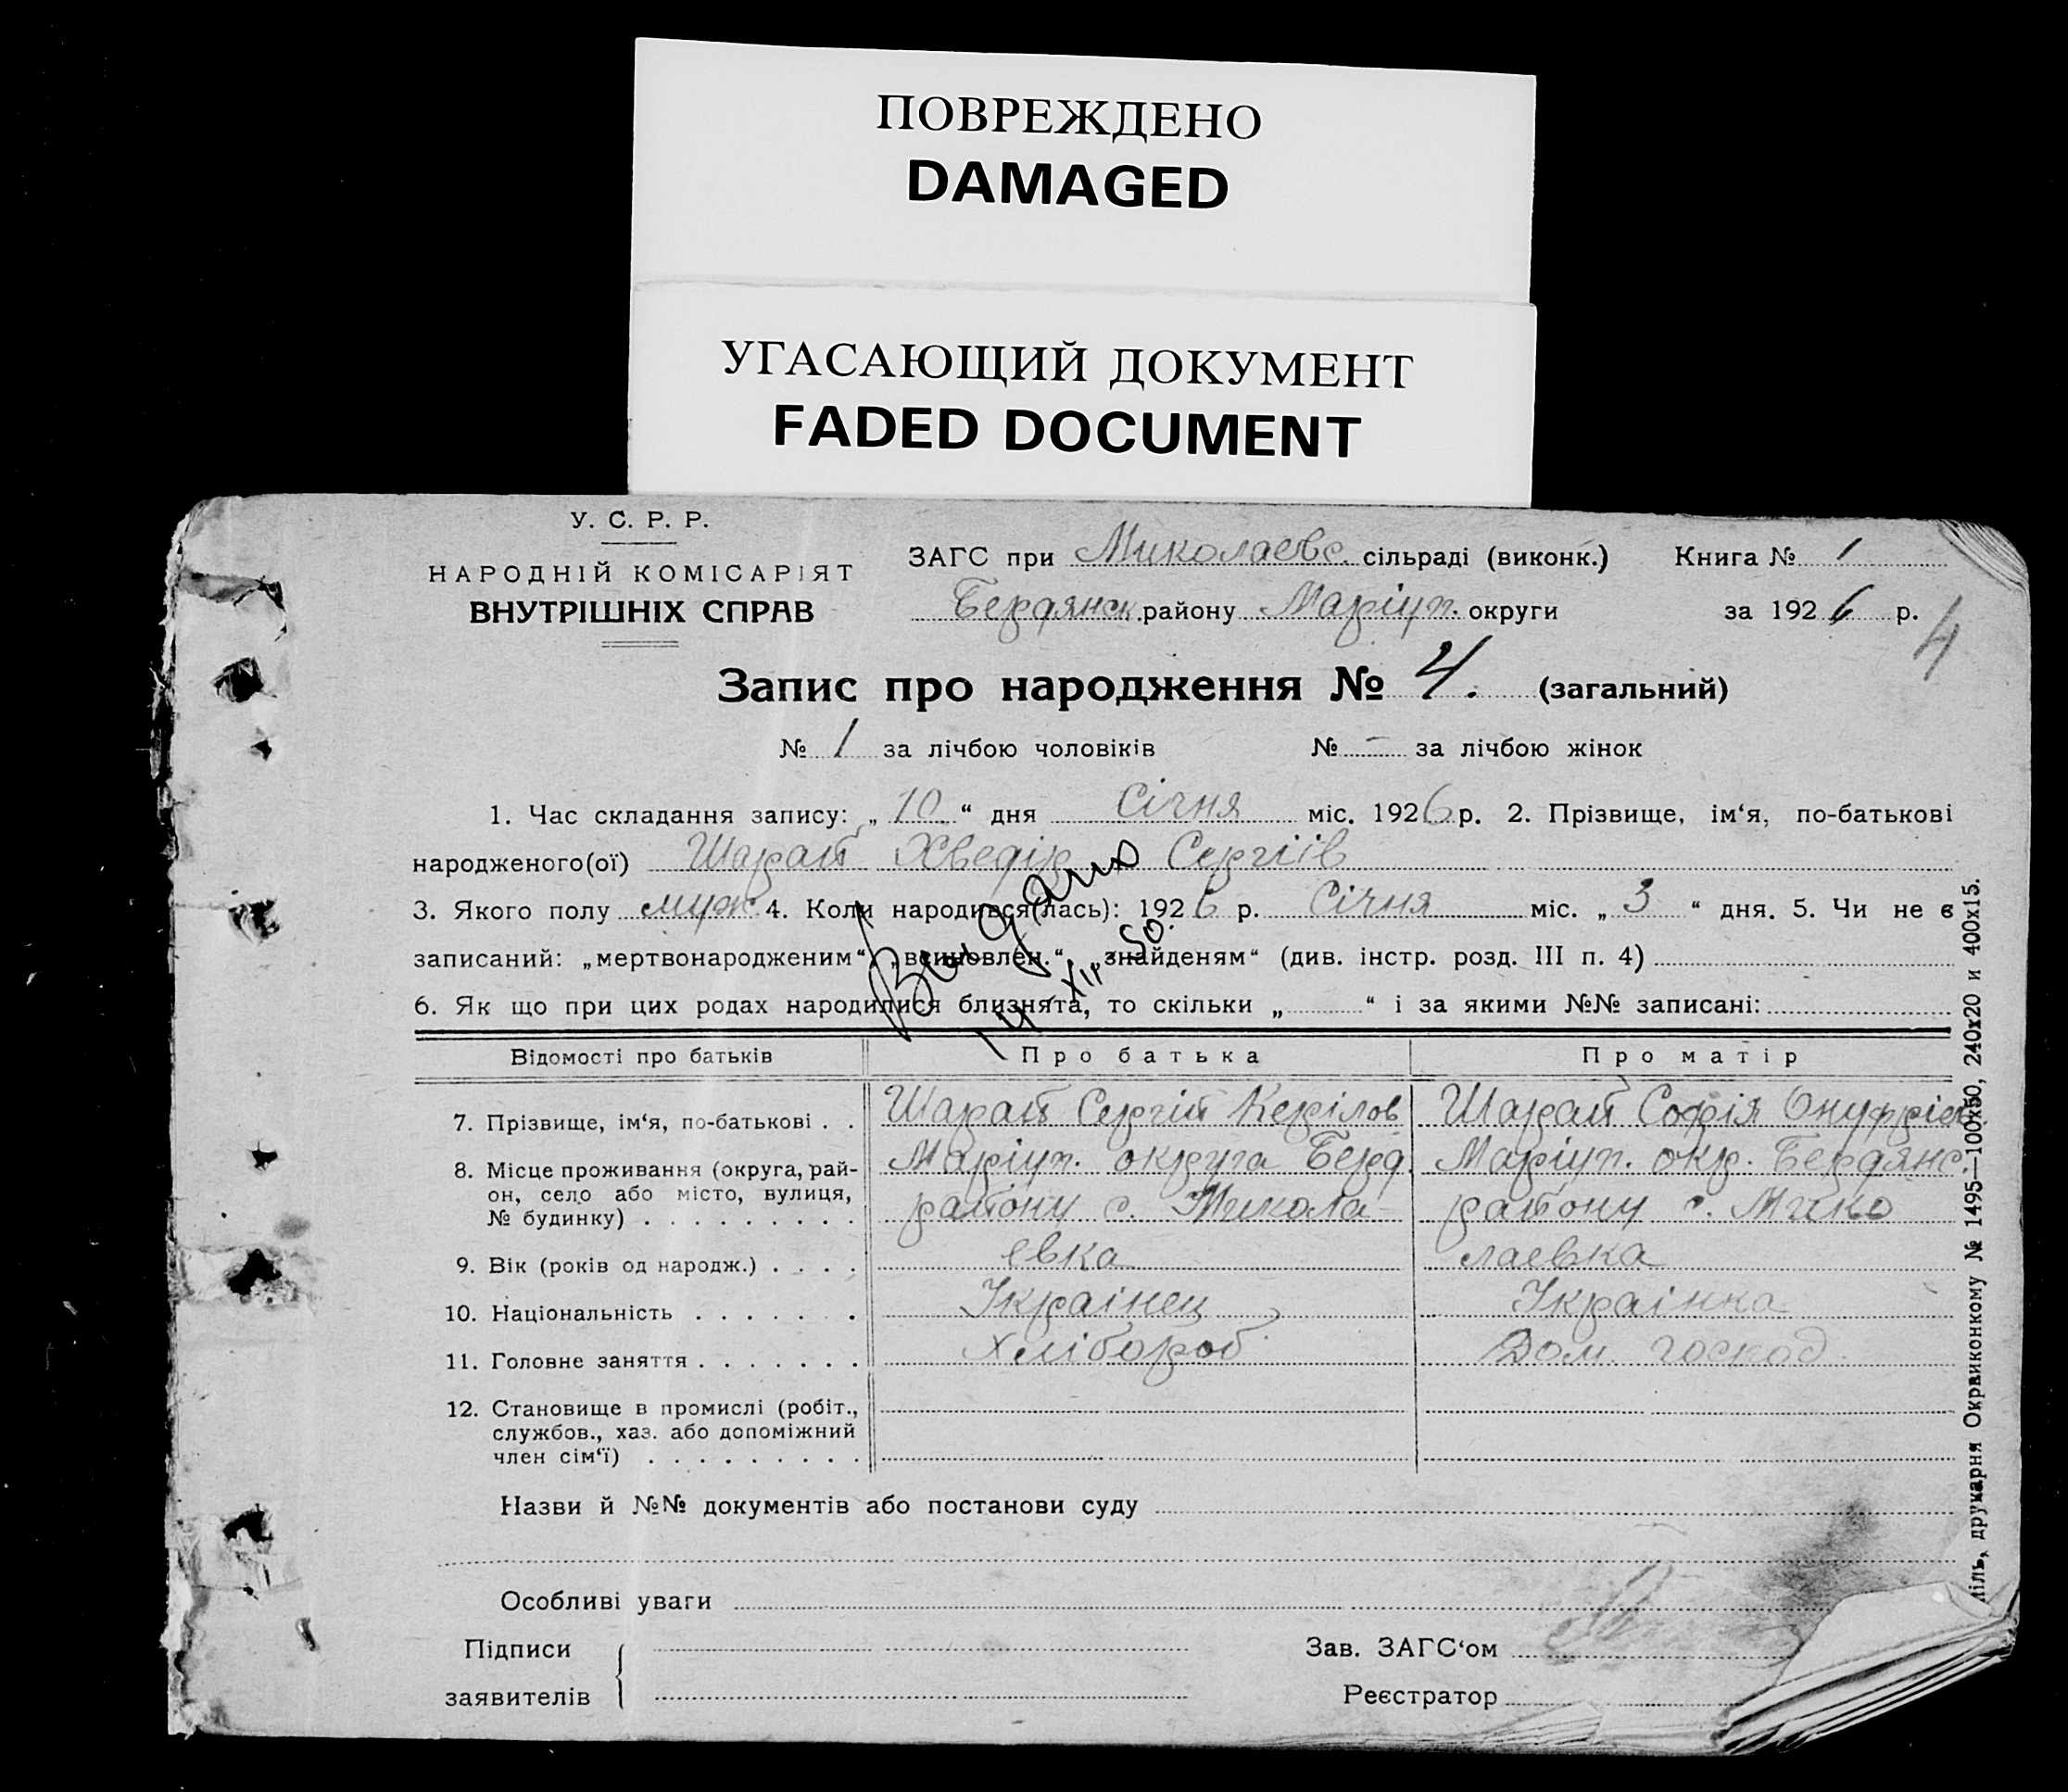 ПОВРЕЖДЕНО
DAMAGED
УГАСАЮЩИЙ ДОКУМЕНТ
FADED DOCUMENT
У. С. Р. Р.
НАРОДНІЙ КОМІСАРІЯТ
ВНУТРІШНІХ СПРАВ
ЗАГС при Миколаевс. сільраді (виконк.) Книга № 1
Бердянск. району Маріуп. округи за 1926 р.
4
Запис про народження № 4. (загальний)
№ 1 за лічбою чоловіків № - за лічбою жінок
1. Час складання запису: „10“ дня Січня міс. 1926 р. 2. Прізвище, ім‘я, по-батькові
народженого(ої) Шарай Хведір Сергіїв
3. Якого полу муж. 4. Коли народився(лась): 1926 р. Січня міс. „3“ дня. 5. Чи не є
записаний: „мертвонародженим“, „всиновлен.“, „знайденям“ (див. інстр. розд. III п. 4)
6. Як що при цих родах народилися близнята, то скільки „ “ і за якими №№ записані:
14 XII 50
Відомості про батьків Про батька Про матір
7. Прізвище, ім‘я, по-батькові . . Шарай Сергій Керілов Шарай Софія Онуфріев
8. Місце проживання (округа, рай- Маріуп. округа Берд. Маріуп. окр. Бердянс.
он, село або місто, вулиця, району с. Микола- району с. Мико
№ будинку) . . . . . . . . .
9. Вік (років од народж.) . . . . евка лаевка
10. Національність . . . . . . . Українец Українка
11. Головне заняття . . . . . . . Хлібороб Дом. господ.
12. Становище в промислі (робіт.,
службов., хаз. або допоміжний
член сім‘ї) . . . . . . . . .
Назви й №№ документів або постанови суду
Особливі уваги
Підписи Зав. ЗАГС‘ом
заявителів Реєстратор
друкарня Окрвиконкому № 1495—100х50, 240х20 и 400х15.